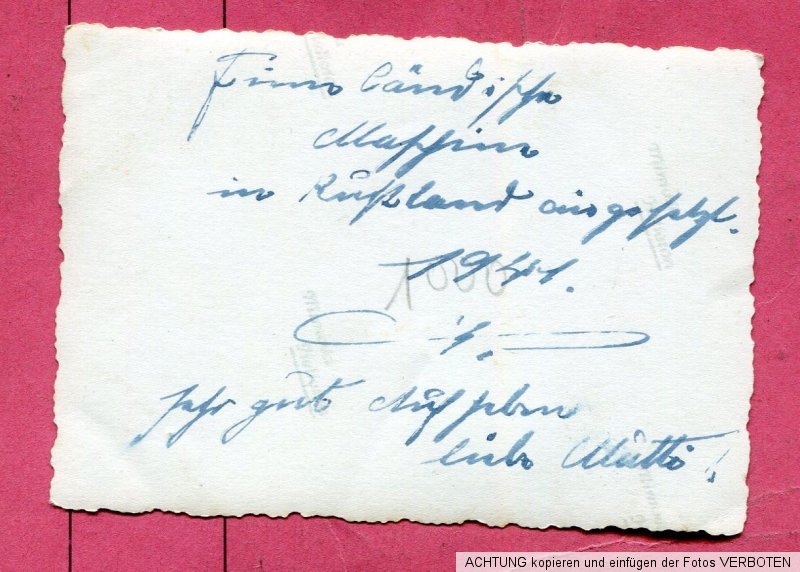 Finnländische
Maschine
in Rußland eingesetzt.
1941.
1000
1.
Sehr gut Aufheben
liebe Mutti!
ACHTUNG kopieren und einfügen der Fotos VERBOTEN